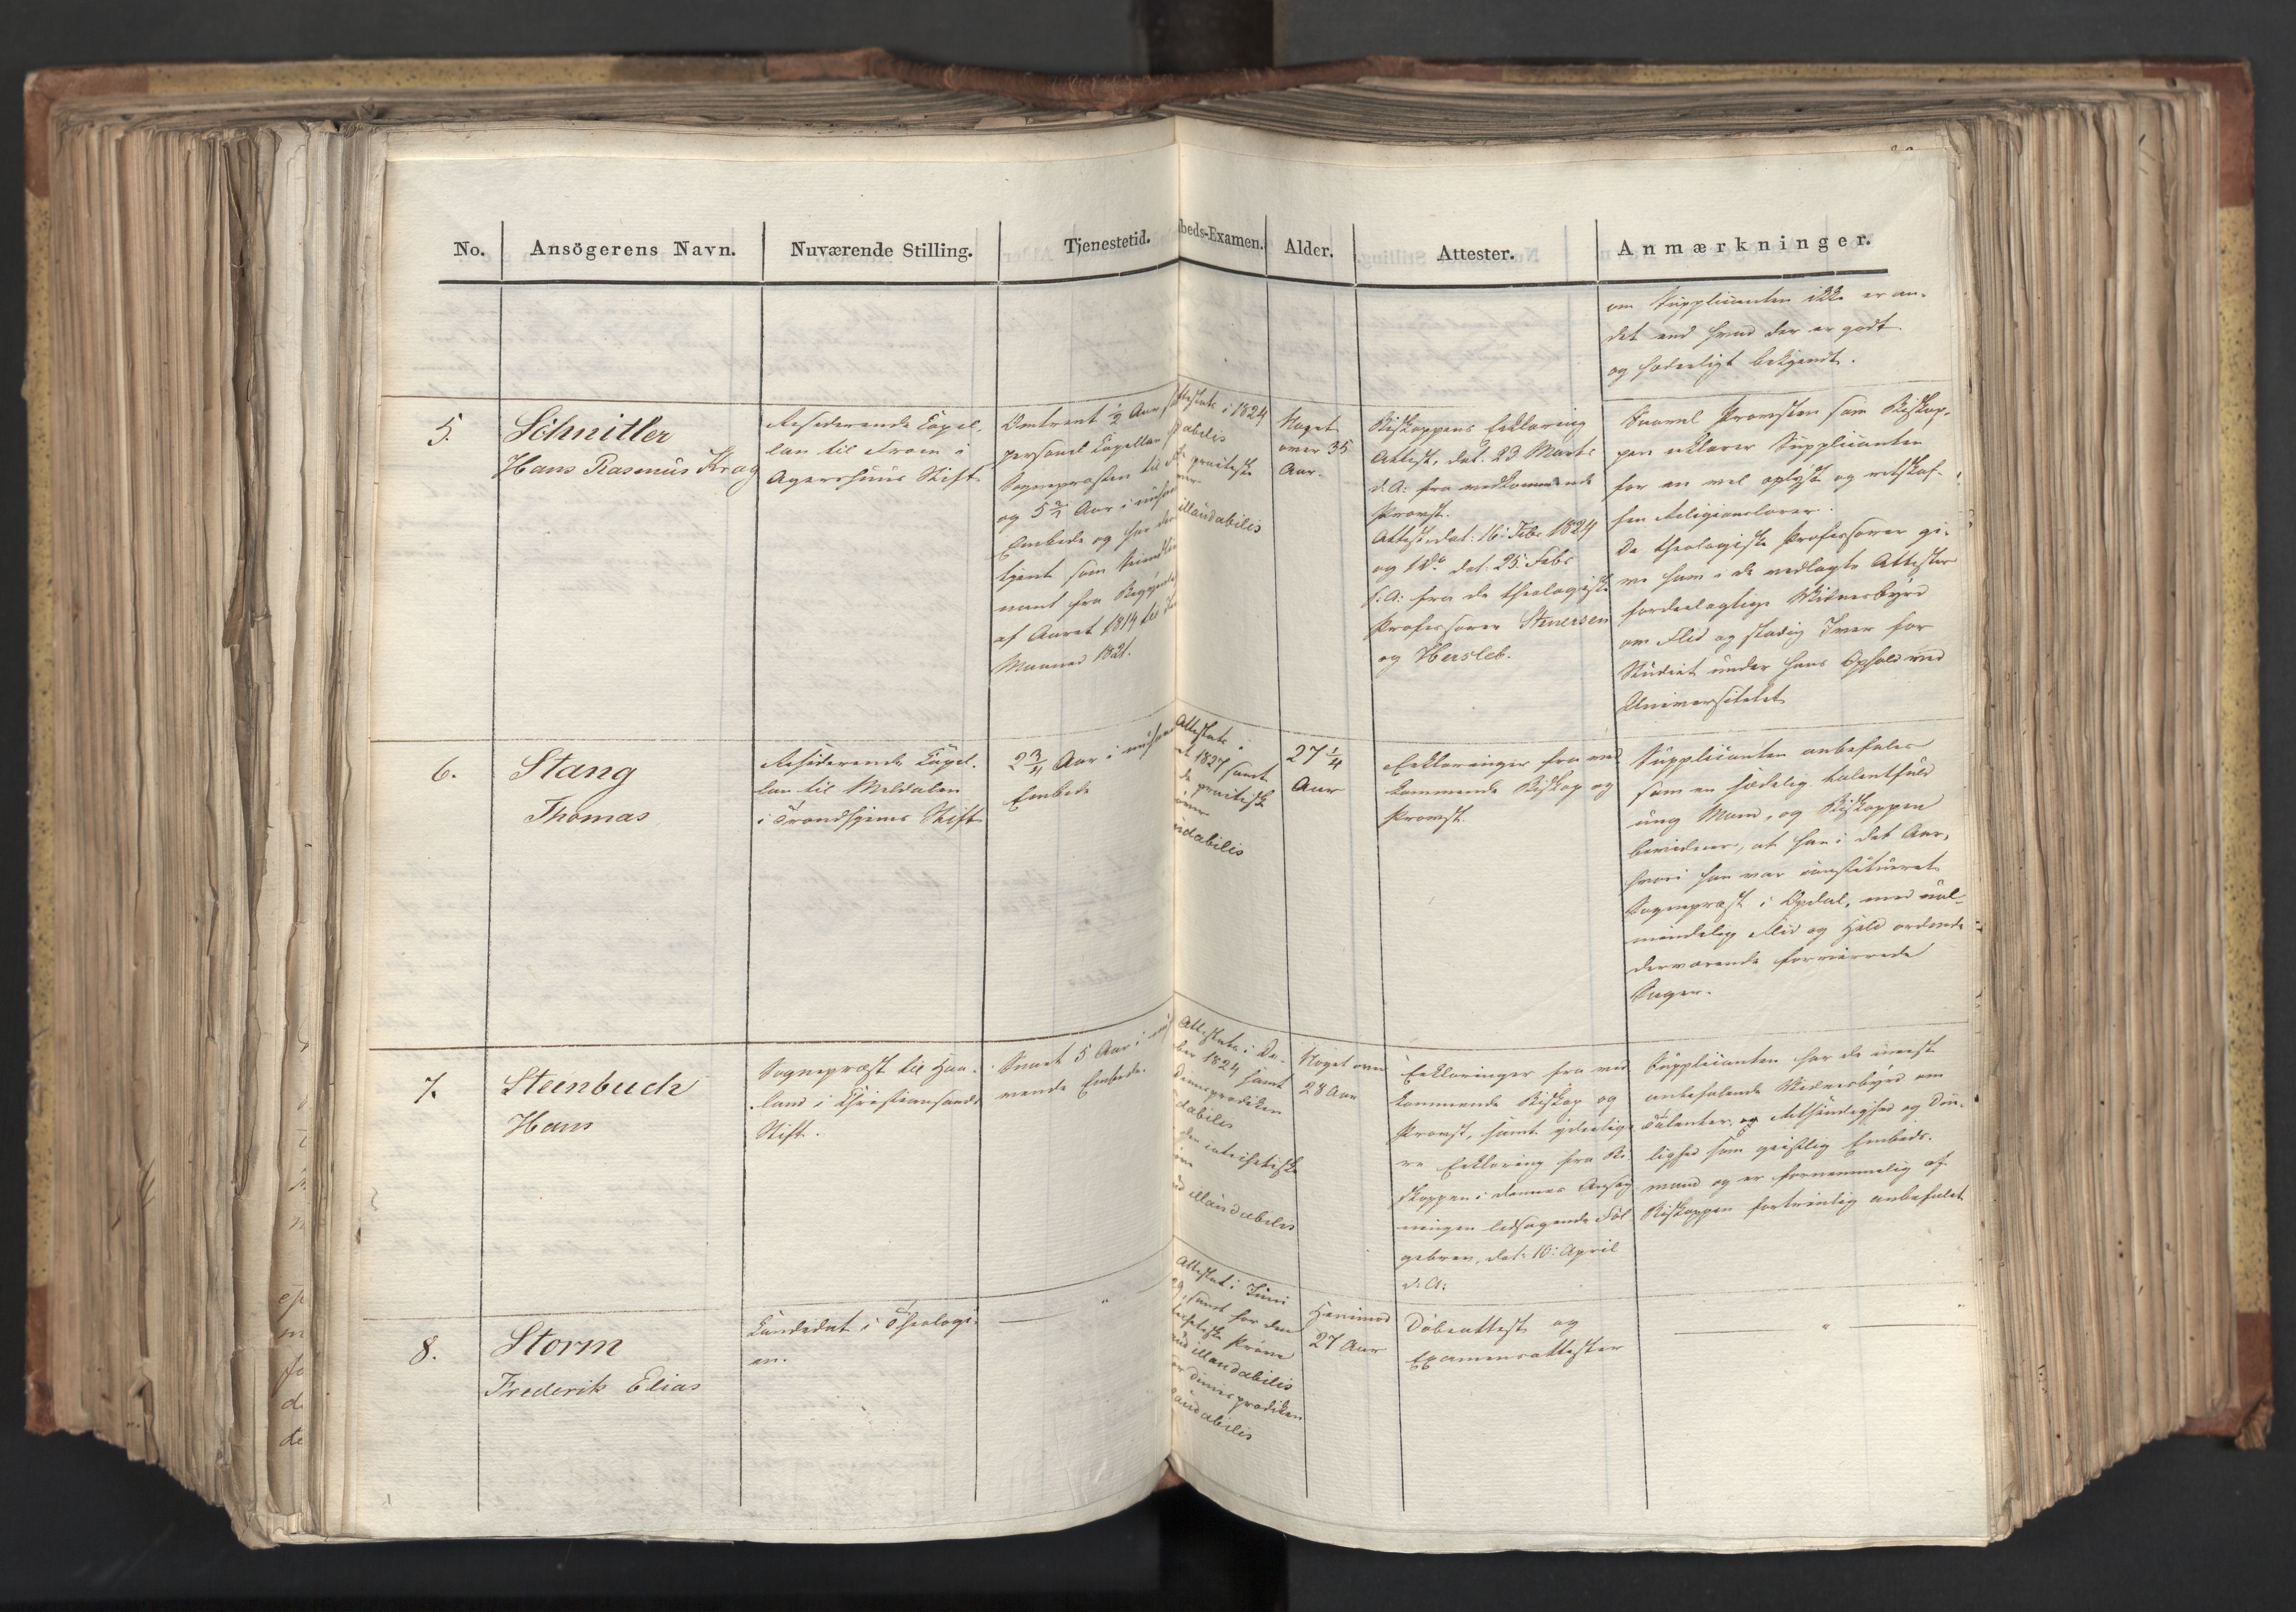 No.
Ansögerens Navn.
Nuværende Stilling.
Tjenestetid.
beds-Examen.
Alder.
Attester.
Anmærkninger.
om Supplicanten ikke er an-
det end hvad der er godt
og hæderligt bekjendt.
5.
Schnitler
Hans Rasmus Krag
Residerende Capel-
lan til Froen i
Agershuus Stift
Omtrent ½ Aar
personel Capellan
Sognepræsten til
og 5 Aar i
Embede og har
tjent som
nant fra
af Aaret 1814 til
Maaned 1821.
Attestats i 1824
practiske
illaudabilis
Noget
over 35
Aar.
Biskoppens Erklæring
Attest, dat. 23 Marts
d. A. fra vedkommende
Provst.
Attest, dat: 16 Febr 1824
og 1 do dat. 25 Febr
s. A. fra de theologiske
Professorer Stenersen
og Hersleb.
Saavel Provsten som Biskop-
pen erklærer Supplicanten
for en vel oplyst og retskaf-
fen Religionslærer.
De theologiske Professorer gi-
ve ham i de vedlagte Attester
fordeelagtige Vidnesbyrd
om Flid og stadig Iver for
Studiet under hans Ophold ved
Universitetet
6.
Stang
Thomas
Residerende Capel-
lan til Meldalen
i Trondhjems Stift
2¾ Aar i
Embede
Attestats i
1827 samt
practisk
udabilis
27¼
Aar
Erklæringer fra ved
kommende Biskop og
Provst.
Supplicanten anbefales
som en sædelig talentfuld
ung Mand, og Biskoppen
bevidner, at han i det Aar,
hvori han var constitueret
Sognepræst i Opdal, med ual-
mindelig Flid og Held ordnede
derværende forvirrede
Sager.
7.
Steenbuch
Hans
Sognepræst til Haa-
land i Christiansands
Stift.
Snart 5 Aar i
værende Embede.
Attestats i De-
ber 1824 samt
Dimisprædiken
dabilis
den catechetiske
illaudabilis
Noget over
28 Aar
Erklæringer fra ved
kommende Biskop og
Provst, samt yderlige-
re Erklæring fra Bi
skoppen i dennes Ansøg
ningen ledsagende Føl
gebrev, dat: 10: April
d. A.
Supplicanten har de meest
anbefalende Vidnesbyrd om
Talenter, Retsindighed og Due-
lighed som geistlig Embeds-
mand og er fornemmelig af
Biskoppen fortrinlig anbefalet
8.
Storm
Frederik Elias
Candidat i Theologi-
en.
"
Attestats i Juni
samt for den
Prøve
aud illaudabilis
dimisprædiken
laudabilis
Henimod
27 Aar
Døbeattest og
Examensattester
"